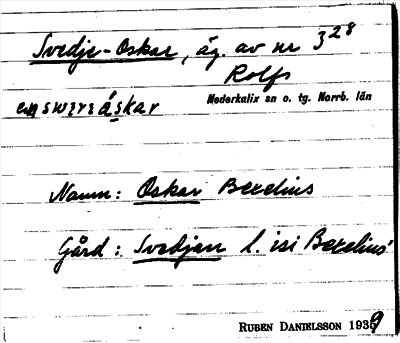 Svedje-Oskar, äg. av nr 3²⁸
Rolfs
Nederkalix sn o. tg. Norrb. län
Namn: Oskar Berelius
Gård: Svedjan l. isi Berelius'
RUBEN DANIELSSON 1939